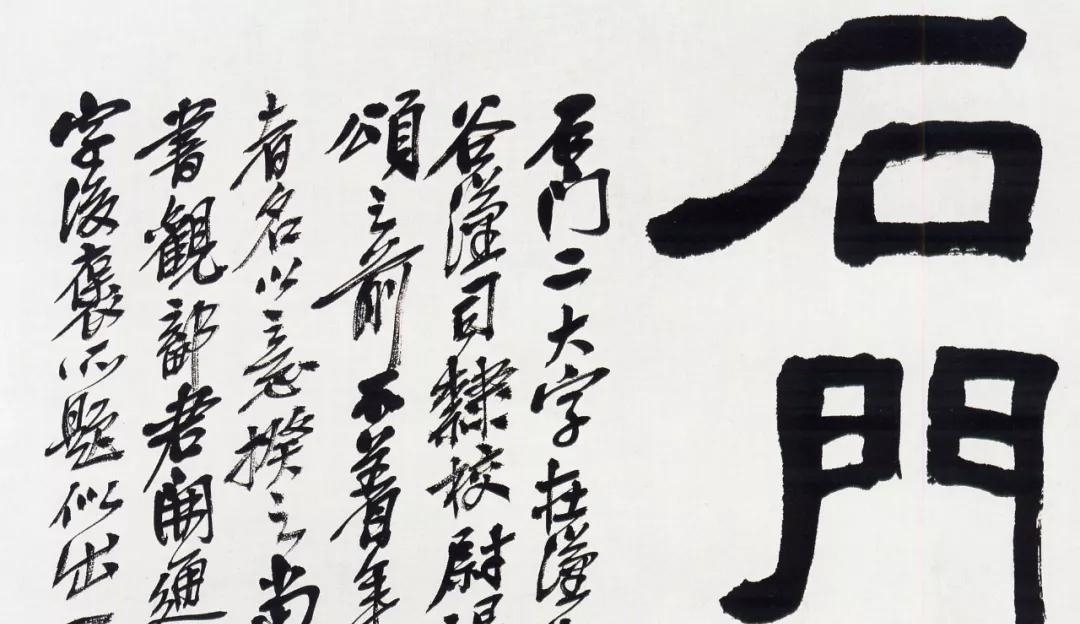 石門
石門二大字在漢
谷漢司隸校尉
頌之前不著年
者名以意揆之當
書觀鄐君開通
字後褒所題似出